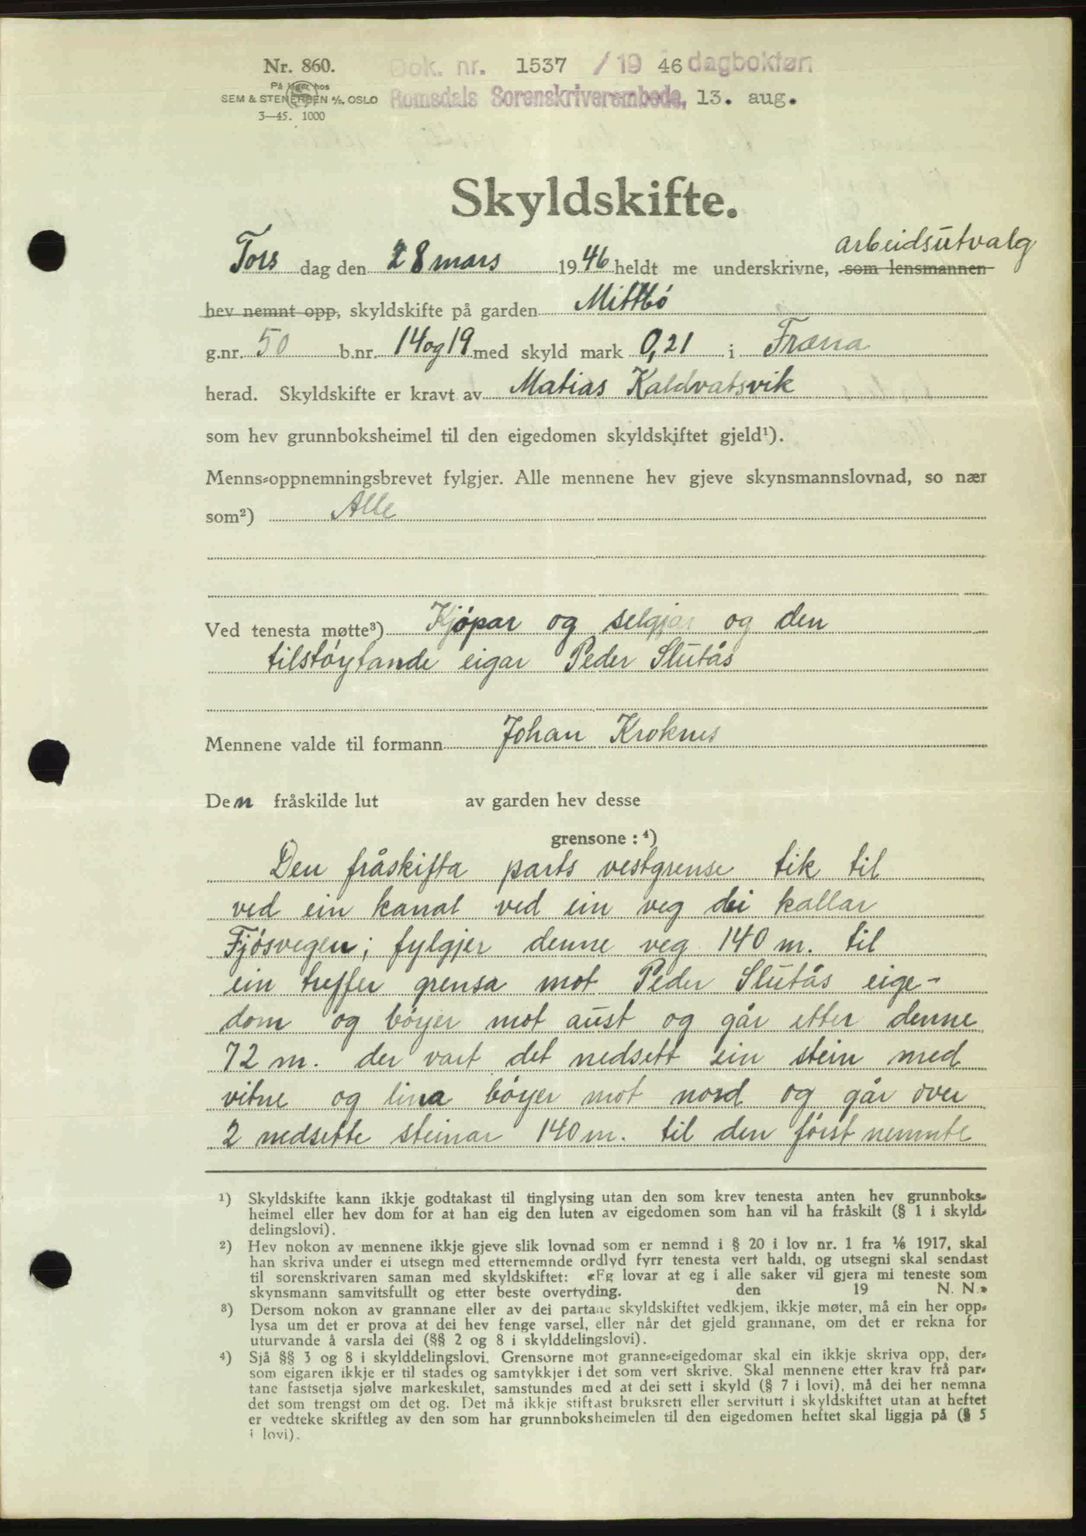 Nr. 860.
Dok. nr. 1537 / 19 46 dagbokført
På lager hos
SEM & STENERSEN A/S, OSLO
Romsdals Sorenskriverembede, 13. aug.
3—45. 1000
Skyldskifte.
arbeidsutvalg
Tors dag den 28 mars 1946 heldt me underskrivne, som lensmannen
hev nemnt opp, skyldskifte på garden Mittbø
g.nr. 50 b.nr. 14 og 19 med skyld mark 0,21 i Fræna
herad. Skyldskifte er kravt av Matias Kaldvatsvik
som hev grunnboksheimel til den eigedomen skyldskiftet gjeld¹).
Menns-oppnemningsbrevet fylgjer. Alle mennene hev gjeve skynsmannslovnad, so nær
som²) Alle
Ved tenesta møtte³) Kjøpar og selgjar og den
tilstøytande eigar Peder Slutås
Mennene valde til formann Johan Kroknes
Den fråskilde lut av garden hev desse
grensone : ⁴)
Den fråskifta parts vestgrense tik til
ved ein kanal ved ein veg dei kallar
Fjøsvegen; fylgjer denne veg 140 m. til
ein treffer grensa mot Peder Slutås eige-
dom og bøyer mot aust og går etter denne
72 m. der vart det nedsett ein stein med
vitne og lina bøyer mot nord og går over
2 nedsette steinar 140 m. til den først nemnte
¹) Skyldskifte kann ikkje godtakast til tinglysing utan den som krev tenesta anten hev grunnboks-
heimel eller hev dom for at han eig den luten av eigedomen som han vil ha fråskilt (§ 1 i skyld-
delingslovi).
²) Hev nokon av mennene ikkje gjeve slik lovnad som er nemnd i § 20 i lov nr. 1 fra 1/6 1917, skal
han skriva under ei utsegn med etternemnde ordlyd fyrr tenesta vert haldi, og utsegni skal sendast
til sorenskrivaren saman med skyldskiftet: «Eg lovar at eg i alle saker vil gjera mi teneste som
skynsmann samvitsfullt og etter beste overtyding. den 19 N. N.»
³) Dersom nokon av grannane eller av dei partane skyldskiftet vedkjem, ikkje møter, må ein her opp-
lysa um det er prova at dei hev fenge varsel, eller når det gjeld grannane, om det er rekna for
uturvande å varsla dei (§§ 2 og 8 i skylddelingslovi).
⁴) Sjå §§ 3 og 8 i skylddelingslovi. Grensorne mot granne-eigedomar skal ein ikkje skriva opp, der-
som eigaren ikkje er til stades og samtykkjer i det som vert skrive. Skal mennene etter krav frå par-
tane fastsetja sjølve markeskilet, samstundes med at dei sett i skyld (§ 7 i lovi), må dei her nemna
det som trengst om det og. Det må ikkje stiftast bruksrett eller servitutt i skyldskiftet utan at heftet
er vedteke skriftleg av den som har grunnboksheimelen til den eigedomen heftet skal liggja på (§ 5
i lovi).